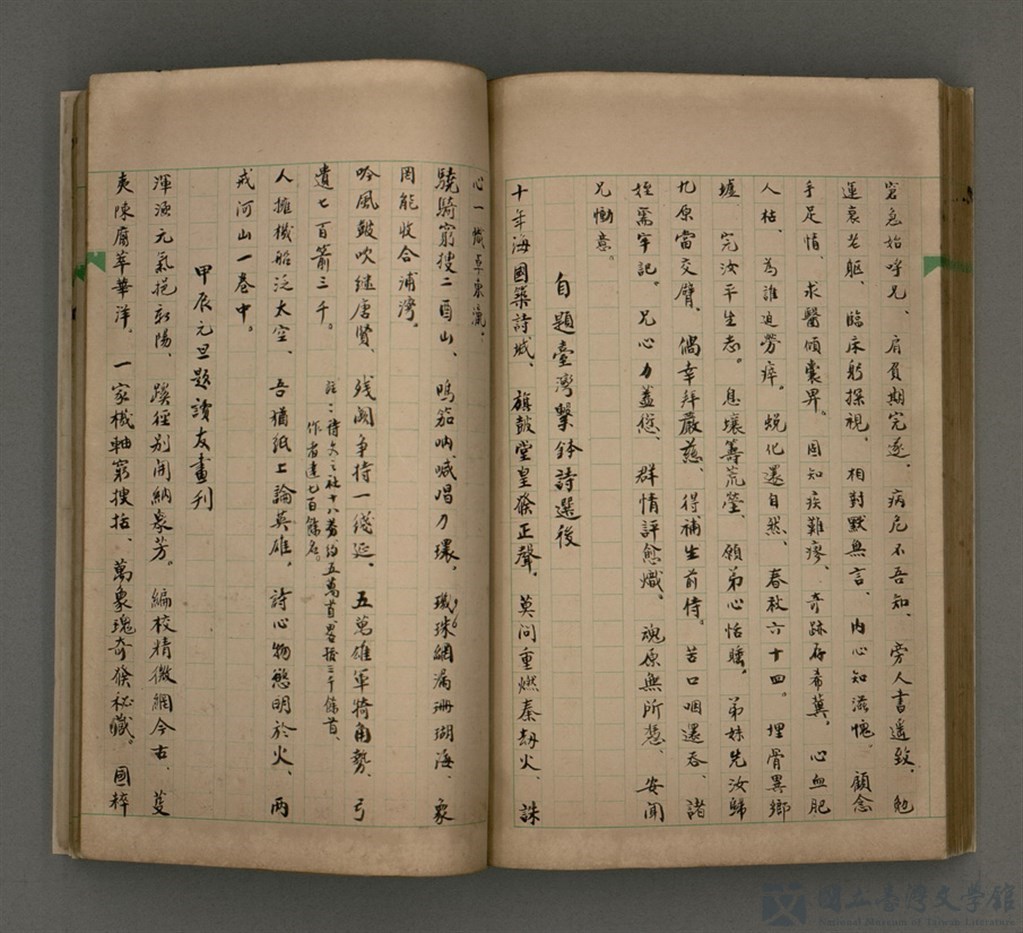 窘急始呼兄、肩負期完逐、病危不吾知、旁人書遙致、勉
運衰老軀、臨床躬探視、相對默無言、內心知滋愧。顧念
手足情、求醫傾囊畀。固知疾難瘳、奇跡存希冀、心血肥
人枯、為誰迫勞瘁。蛻化還自然、春秋六十四。埋骨異鄉
墟、完汝平生志。息壤籌荒塋、願弟心恬睡。弟妹先汝歸
九原當交臂、偶幸拜嚴慈、得補生前侍。苦口咽還吞、諸
姪需牢記。兄心力蓋愆、群情評愈熾。魂原無所慙、安聞
兄慟意。
自題臺灣擊鉢詩選後
十年海國築詩城、旗鼓堂皇發正聲。莫問重燃秦劫火、誅
心一懺草東瀛、
驍騎窮搜二酉山、鳴笳吶喊唱刀環。璣珠網漏珊瑚海、象
罔能收合浦灣。
吟風鼓吹繼唐賢、殘闕爭持一綫延、五萬雄軍犄角勢、弓
遺七百箭三千。
註：詩文之社十八萬約五萬首畧獲三千餘首、
作者達七百餘名。
人擁機船泛太空、吾猶紙上論英雄。詩心物態明於火、兩
戒河山一卷中。
甲辰元旦題讀友畫刊
渾淪元氣挹新陽、蹊徑別開納眾芳。編校精微網今古、蔓
夷陳腐萃華洋。一家機軸窮搜括、萬象瑰奇發秘藏。國粹
國立臺灣文學館
National Museum of Taiwan Literature